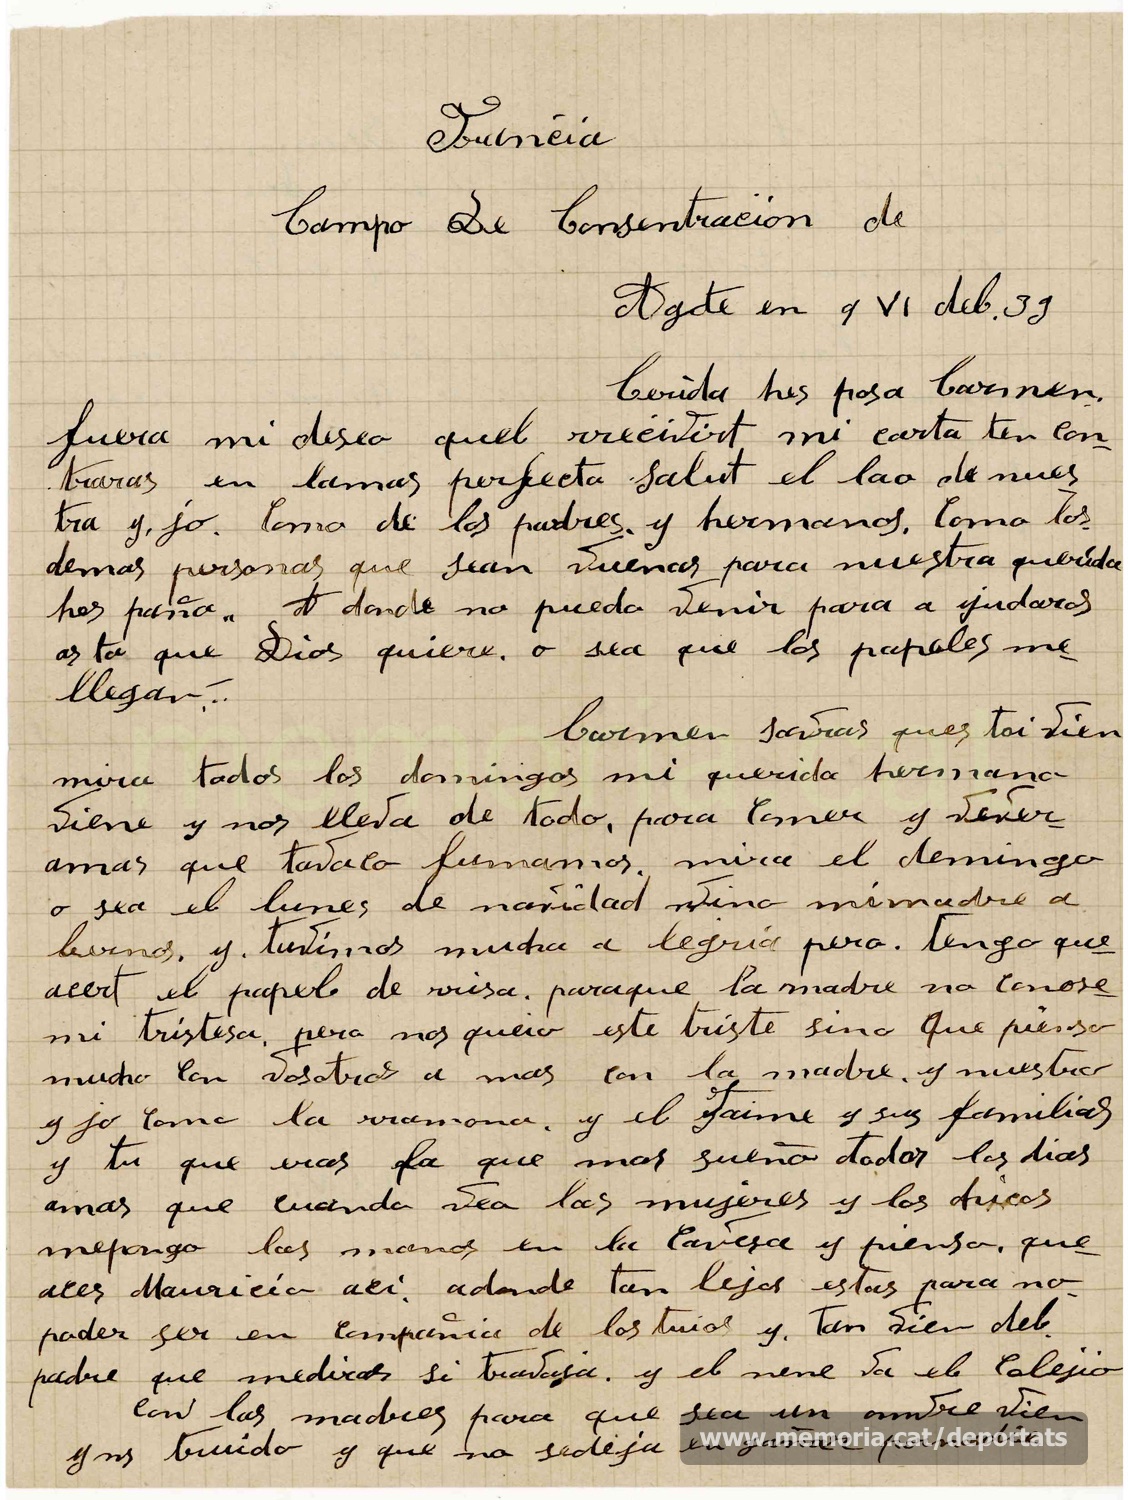 Francia
Campo De Consentración de
Agde en 9 VI deb. 39
Cerida hes posa Carmen.
fuera mi deseo quel rrecivirt mi carta ten con-
traras en lamas perfecta salut el lao de nues
tra y, jo. Como de los padres. y hermanos, Como los
demas personas que sean vuenas para nuestra querida
hes paña„ A donde no puedo venir para a yudaros
as ta que Dios quiere. o sea que los papeles me-
llegan-..
Carmen savras ques toi vien
mira todos los domingos mi querida hermana
viene y nos lleva de todo, para Comer y vever-
amas que tavaco fumamos, mira el demingo
o sea el lunes de navidad vino mimadre a
bernos, y. tuvimos mucha a legria pero. tengo que-
acert el papel de rrisa. paraque la madre no Conose-
mi tristesa, pero nos queio este triste sino que pienso
mucho Con vosotros a mas con la madre. y nuestro
y jo Como la rramona. y el Jaime y sus familias
y tu que eras la que mas sueño todos los dias
amas que cuando veo las mujeres y los chicos
mepongo las manos en la Cavesa y pienso, que-
aces Mauricio aci, adonde tan lejos estas para no-
poder ser en Compañia de los tuios y, tan vien deb.
padre que mediras si travaja. y el nene va el Colejio
con las madres para que sea un omvre vien
yns truido y que no sedeja
www.memoria.cat/deportats